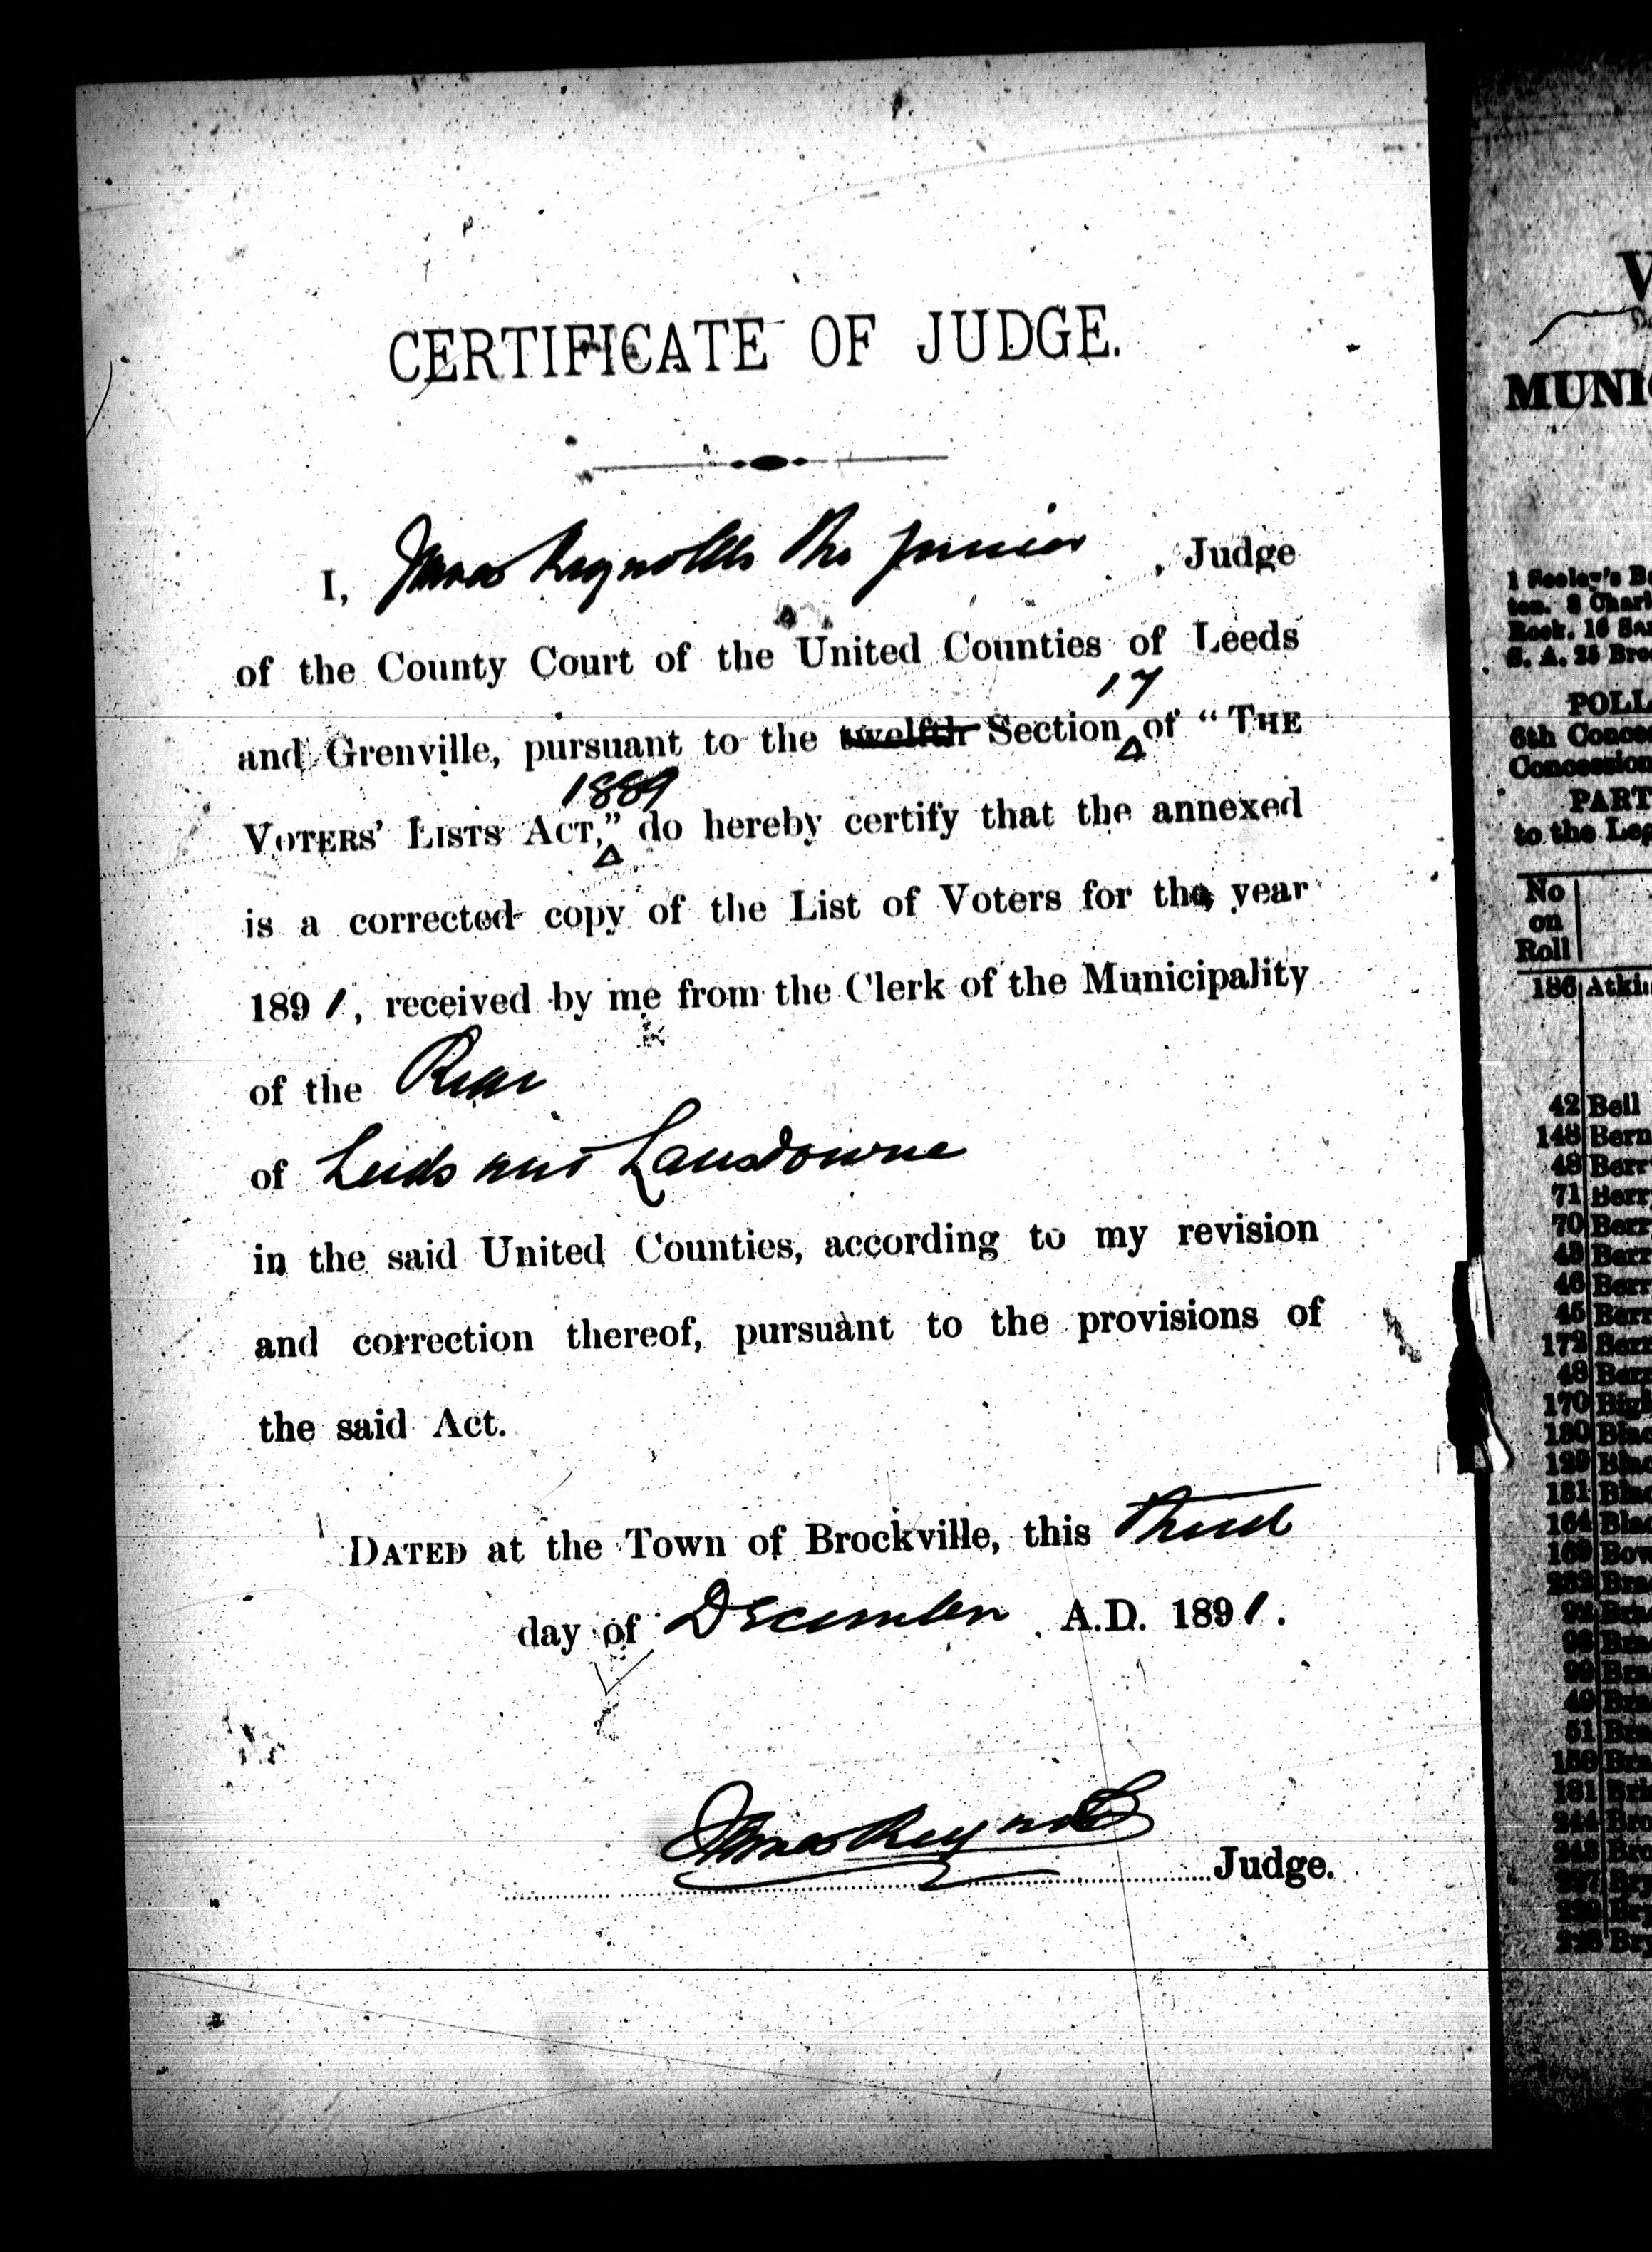 CERTIFICATE OF JUDGE.
I, James Reynolds the junior, Judge
of the County Court of the United Counties of Leeds
17
and Grenville, pursuant to the twelfth Section of "THE
1889
VOTERS' LISTS ACT," do hereby certify that the annexed
is a corrected copy of the List of Voters for the year
1891, received by me from the Clerk of the Municipality
of the Rear
of Leeds and Lansdowne
in the said United Counties, according to my revision
and correction thereof, pursuant to the provisions of
the said Act.
DATED at the Town of Brockville, this Third
day of December A.D. 1891.
James Reynolds Judge.
V
MUNIC
1 Seeley's B
ton. 8 Charl
Rock. 16 Sam
S. A. 25 Bro
POLL
6th Conces
Concession
PART
to the Leg
No
on
Roll
186 Atki
42 Bell
148 Bern
48 Berr
71 Berr
70 Berr
43 Berr
46 Berr
45 Berr
172 Berr
48 Berr
170 Big
180 Blac
129 Blac
131 Blac
164 Blac
169 Bow
232 Bra